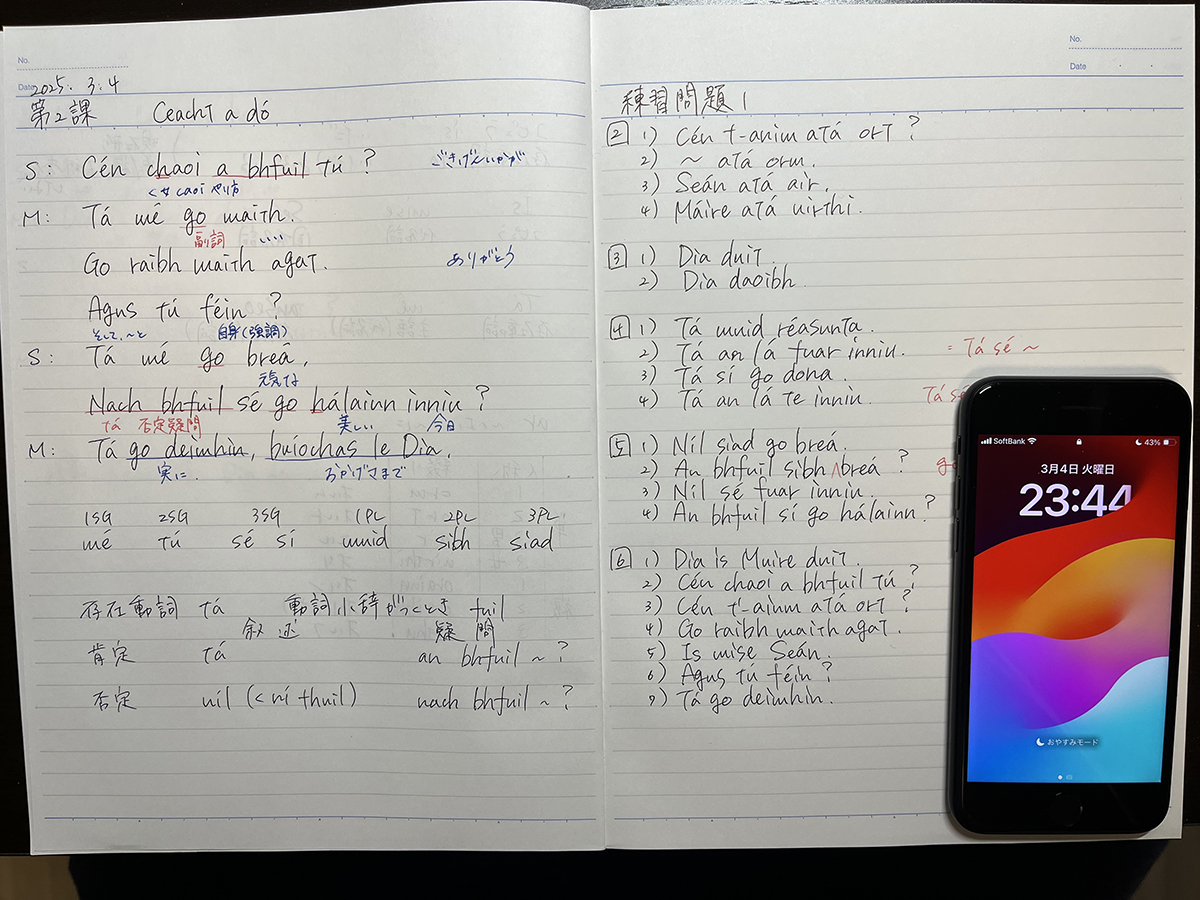 No.
Date 2025. 3. 4
第2課 Ceacht a dó
S: Cén chaoi a bhfuil tú ? ごきげんいかが
< 女 caoi やり方
M: Tá mé go maith.
副詞 いい
Go raibh maith agat. ありがとう
Agus tú féin ?
そして、～と 自身(強調)
S: Tá mé go breá,
元気な
Nach bhfuil sé go hálainn inniu ?
tá 否定疑問 美しい 今日
M: Tá go deimhin, buíochas le Dia.
実に. おかげさまで
1SG 2SG 3SG 1PL 2PL 3PL
mé tú sé sí muid sibh siad
存在動詞 tá 動詞小辞がつくとき fuil
叙述 疑問
肯定 tá an bhfuil ~ ?
否定 níl (< ní fhuil) nach bhfuil ~ ?
No.
Date
練習問題 1
2 1) Cén t-ainm atá ort ?
2) ~ atá orm.
3) Seán atá air.
4) Máire atá uirthi.
3 1) Dia duit.
2) Dia daoibh.
4 1) Tá muid réasunta.
2) Tá an lá fuar inniu. = Tá sé ~
3) Tá sí go dona.
4) Tá an lá te inniu. Tá sé
5 1) Níl siad go breá.
2) An bhfuil sibh ∧breá ? go
3) Níl sé fuar inniu.
4) An bhfuil sí go hálainn ?
6 1) Dia is Muire duit.
2) Cén chaoi a bhfuil tú ?
3) Cén t-ainm atá ort ?
4) Go raibh maith agat.
5) Is mise Seán.
6) Agus tú féin ?
7) Tá go deimhin.
SoftBank 43%
3月4日 火曜日
23:44
おやすみモード